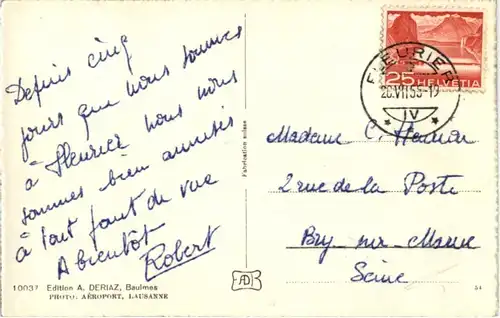 Depuis cinq
jours que nous sommes
à Fleurier nous nous
sommes bien amusés
à tout point de vue
A bientôt
Robert
10037 Edition A. DERIAZ, Baulmes
PHOTO. AÉROPORT, LAUSANNE
Fabrication suisse
25 HELVETIA
FLEURIER
IV
Madame C.
2 rue de la Poste
Bry sur Marne
Seine